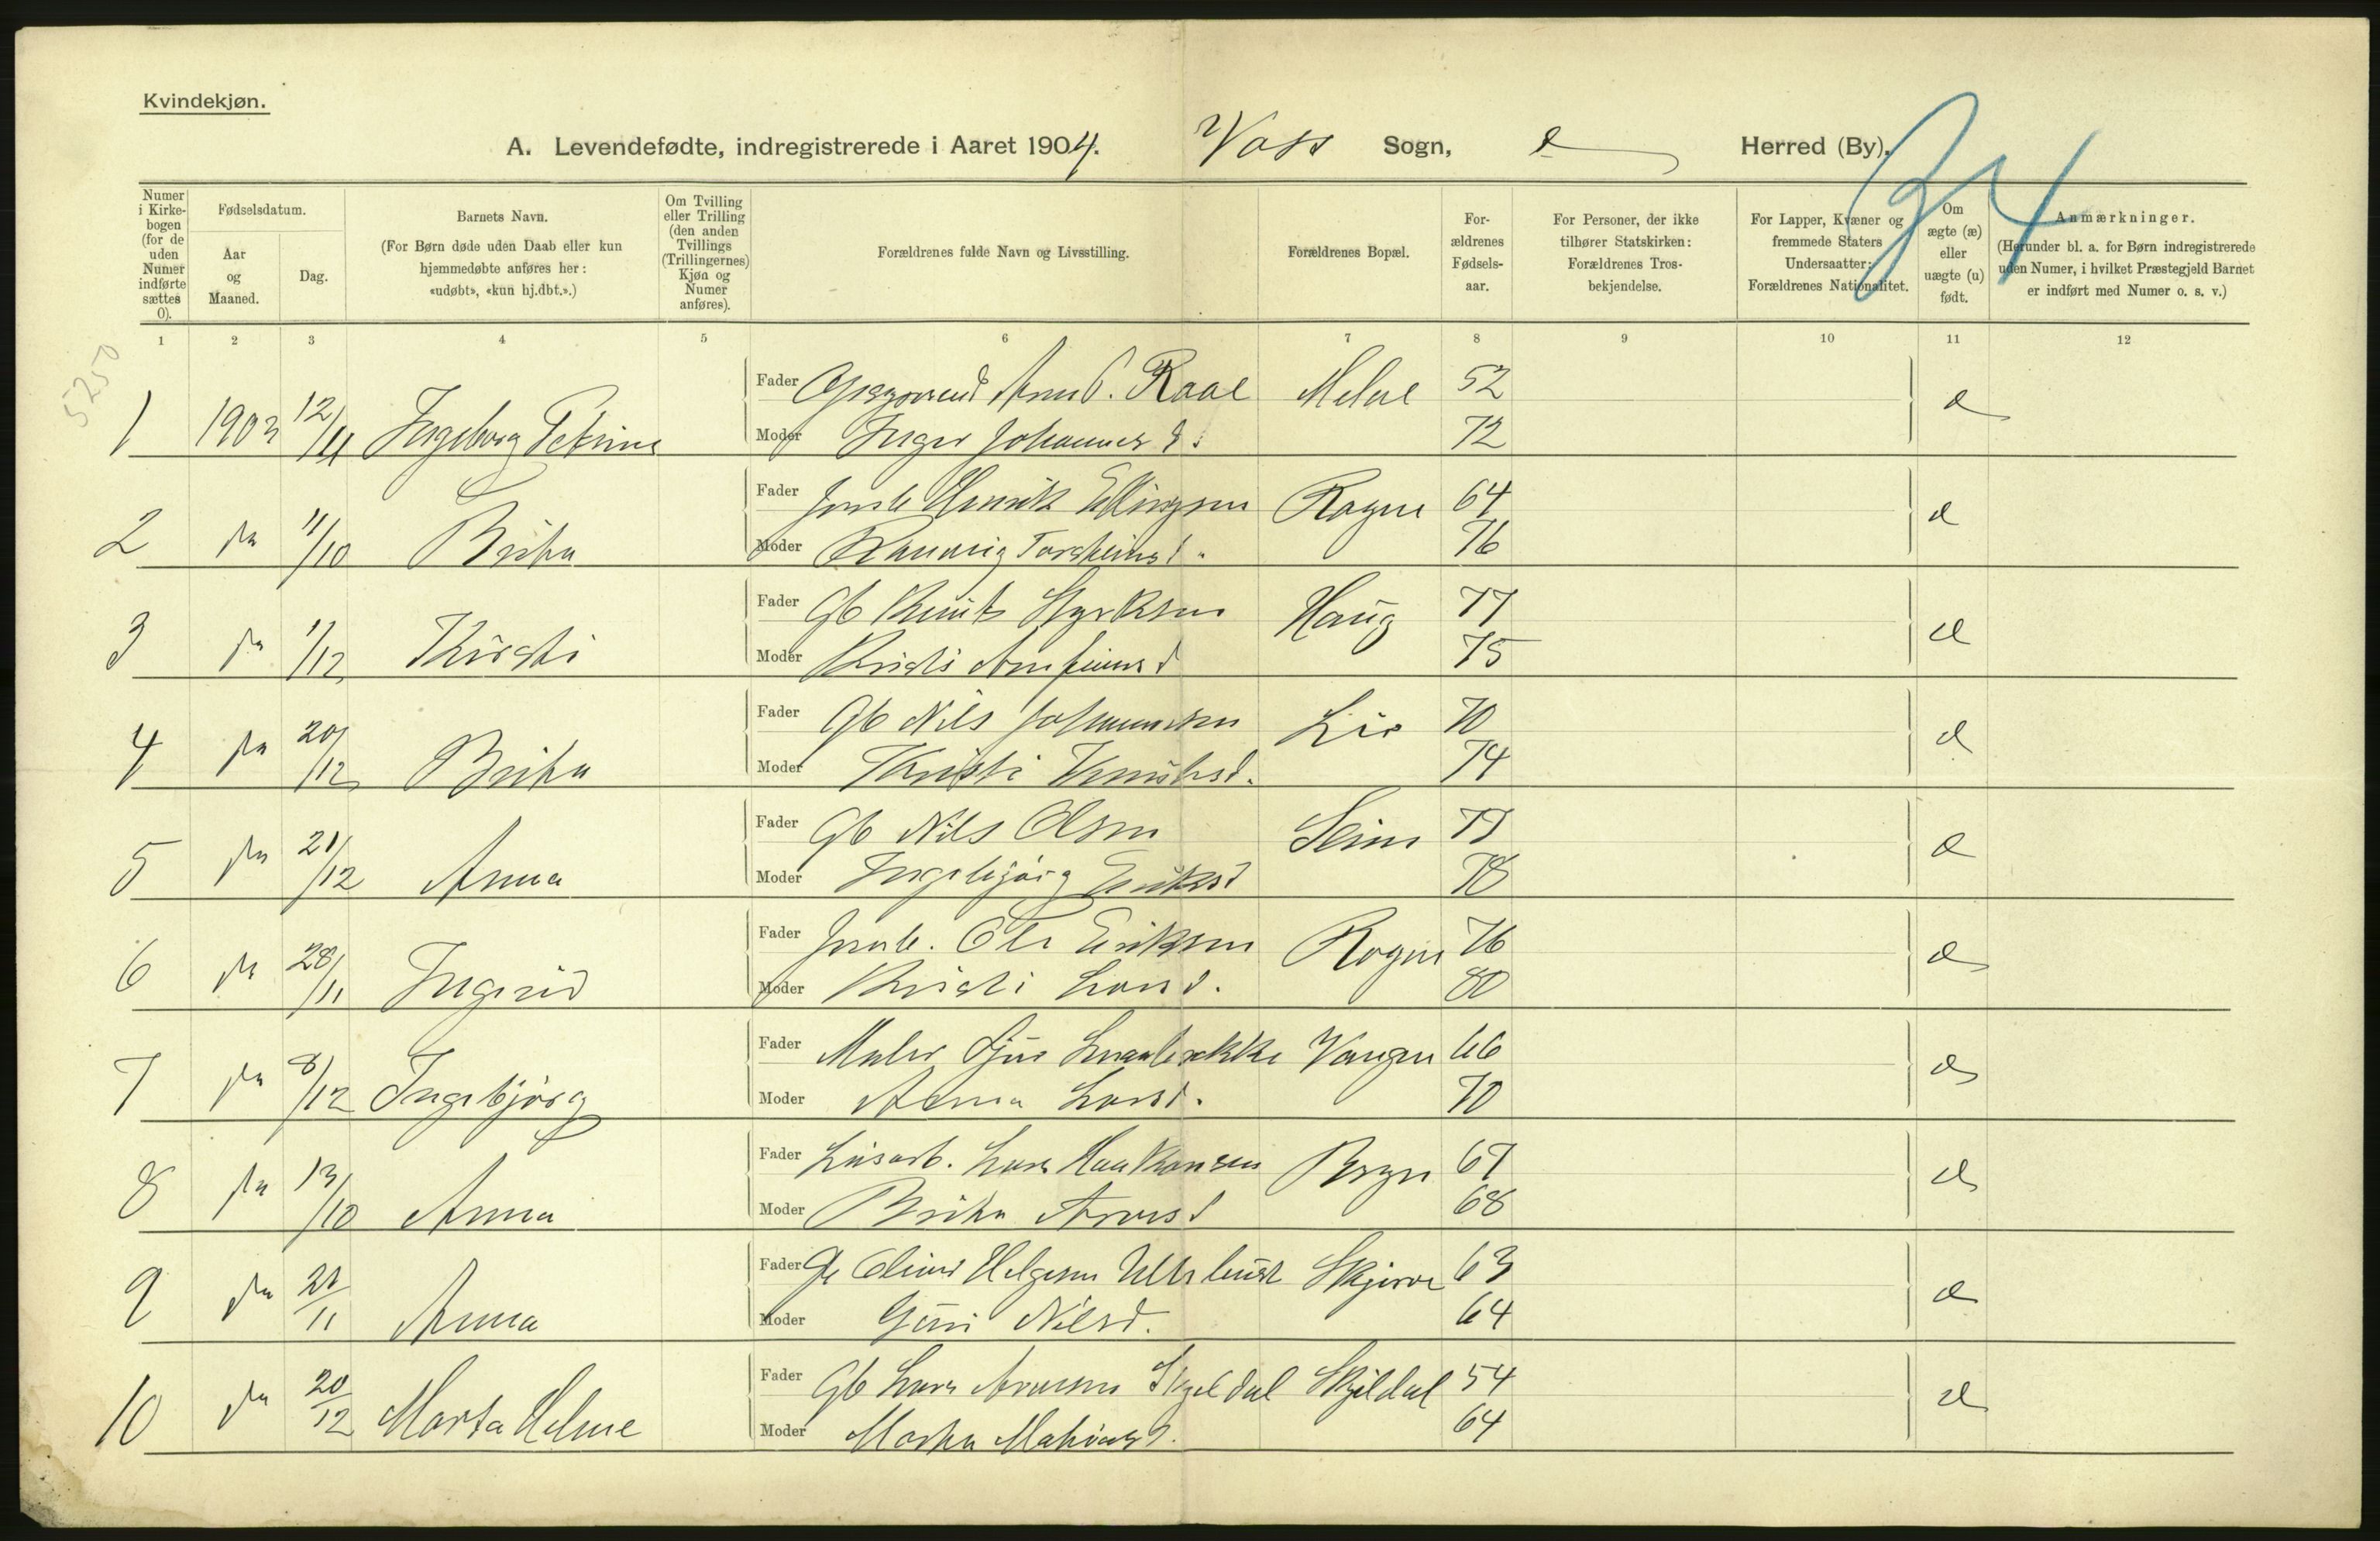 Kvindekjøn.
A. Levendefødte, indregistrerede i Aaret 1904. Voss Sogn, Herred (By).
34
Numer i Kirkebogen (for de uden Numer indførte sættes 0).
Fødselsdatum.
Aar og Maaned.
Dag.
Barnets Navn.
(For Børn døde uden Daab eller kun hjemmedøbte anføres her: «udøbt», «kun hj.dbt.».)
Om Tvilling eller Trilling (den anden Tvillings (Trillingernes) Kjøn og Numer anføres).
Forældrenes fulde Navn og Livsstilling.
Forældrenes Bopæl.
Forældrenes Fødselsaar.
For Personer, der ikke tilhører Statskirken: Forældrenes Trosbekjendelse.
For Lapper, Kvæner og fremmede Staters Undersaatter: Forældrenes Nationalitet.
Om ægte (æ) eller uægte (u) født.
Anmærkninger.
(Herunder bl. a. for Børn indregistrerede uden Numer, i hvilket Præstegjeld Barnet er indført med Numer o. s. v.)
1 2 3 4 5 6 7 8 9 10 11 12
5250
1 1903 12/11 Ingeborg Petrine Fader Arne Raae 52 æ
Moder Inger Johannesd. 72
2 da 11/10 Brita Fader Henrik Ellingsen Rogne 64 æ
Moder Rannveig Torsteinsd. 76
3 da 1/12 Kirsti Fader Gb Knut Styrksen Haug 77 æ
Moder Kristi Arnfinnsd 75
4 da 20/12 Brita Fader Gb Nils Johannesen Lie 70 æ
Moder Kristi Knutsd. 74
5 da 21/12 Anna Fader Gb Nils Olsen Seim 77 æ
Moder Ingebjørg Eriksd 78
6 da 28/11 Ingerid Fader Ole Eriksen Rogne 76 æ
Moder Kristi Larsd. 80
7 da 8/12 Ingebjörg Fader Maler Sjur Vangen 66 æ
Moder Anna Larsd. 70
8 da 13/10 Anna Fader Lösarb. Lars Haakonsen Bryn 67 æ
Moder Brita Arnesd 68
9 da 11 Anna Fader Helgesen Skjerve 63 æ
Moder Guri Nilsd. 64
10 da 20/12 Marta Helene Fader Gb Lars Arnesen Skjeldal Skjeldal 54 æ
Moder Marta Mathiasd. 64